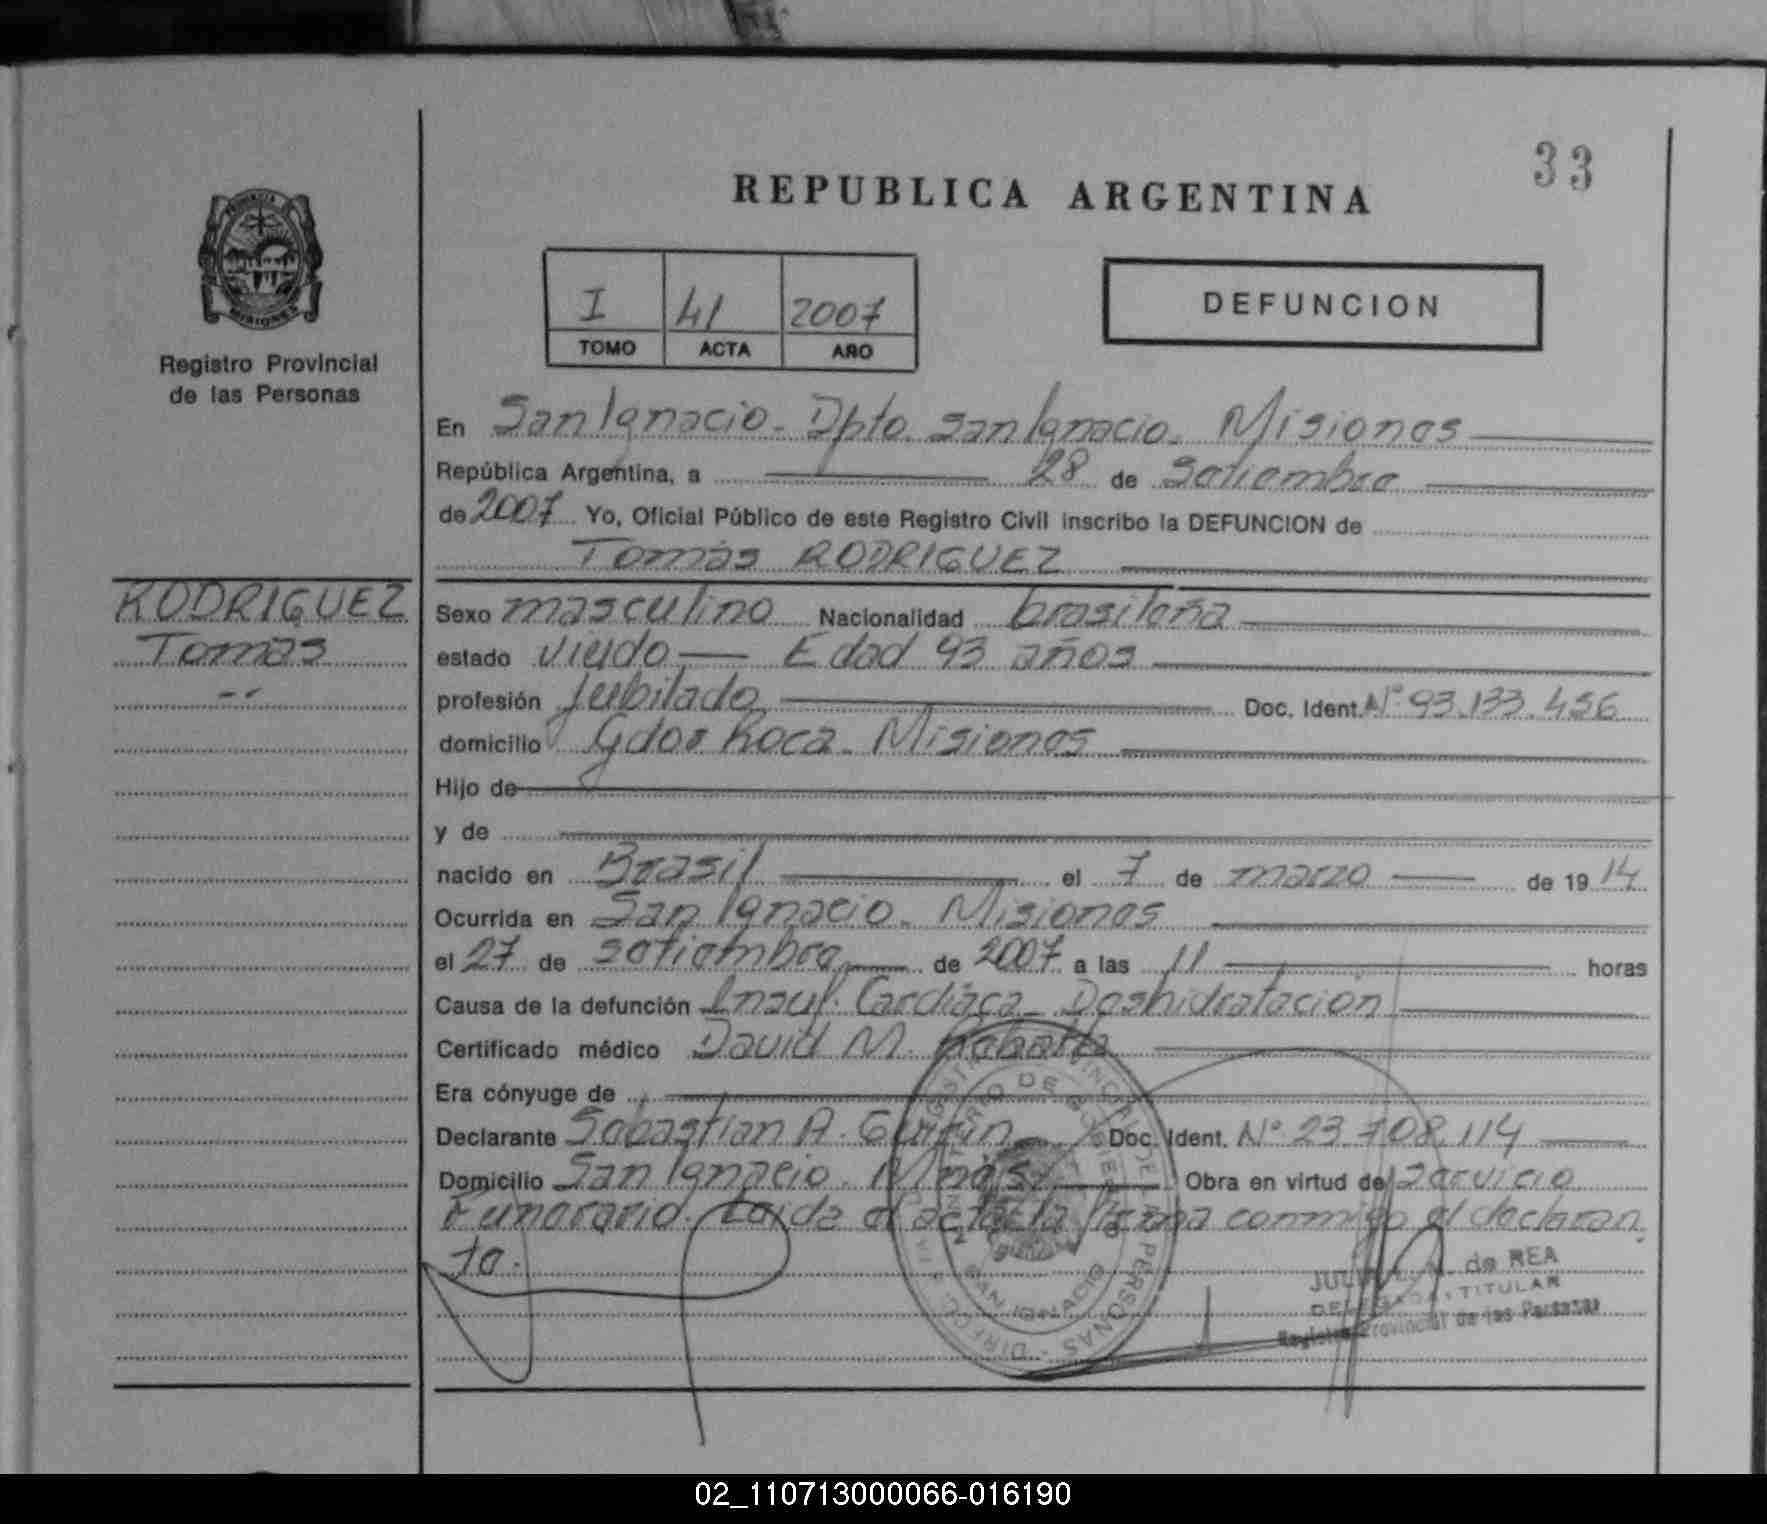 33
REPUBLICA ARGENTINA
PROVINCIA DE
MISIONES
Registro Provincial
de las Personas
I 41 2007
TOMO ACTA AÑO
DEFUNCION
En San Ignacio - Dpto. San Ignacio - Misiones
República Argentina, a 28 de Setiembre
de 2007 Yo, Oficial Público de este Registro Civil inscribo la DEFUNCION de
Tomás RODRIGUEZ
RODRIGUEZ
Tomás
Sexo masculino Nacionalidad brasileña
estado viudo Edad 93 años
profesión Jubilado Doc. Ident. Nº 93.133.456
domicilio Gdor Roca - Misiones
Hijo de
y de
nacido en Brasil el 7 de marzo de 1914
Ocurrida en San Ignacio - Misiones
el 27 de setiembre de 2007 a las 11 horas
Causa de la defunción Insuf. Cardiaca - Deshidratación
Certificado médico David M.
Era cónyuge de
Declarante Sebastian A. Doc. Ident. Nº 23.708.114
Domicilio San Ignacio - Mnes. Obra en virtud de Servicio
Funerario. Leida el acta la firma conmigo el declaran
te.
SAN IGNACIO
de REA
DELEGADA TITULAR
Registro Provincial de las Personas
02_110713000066-016190